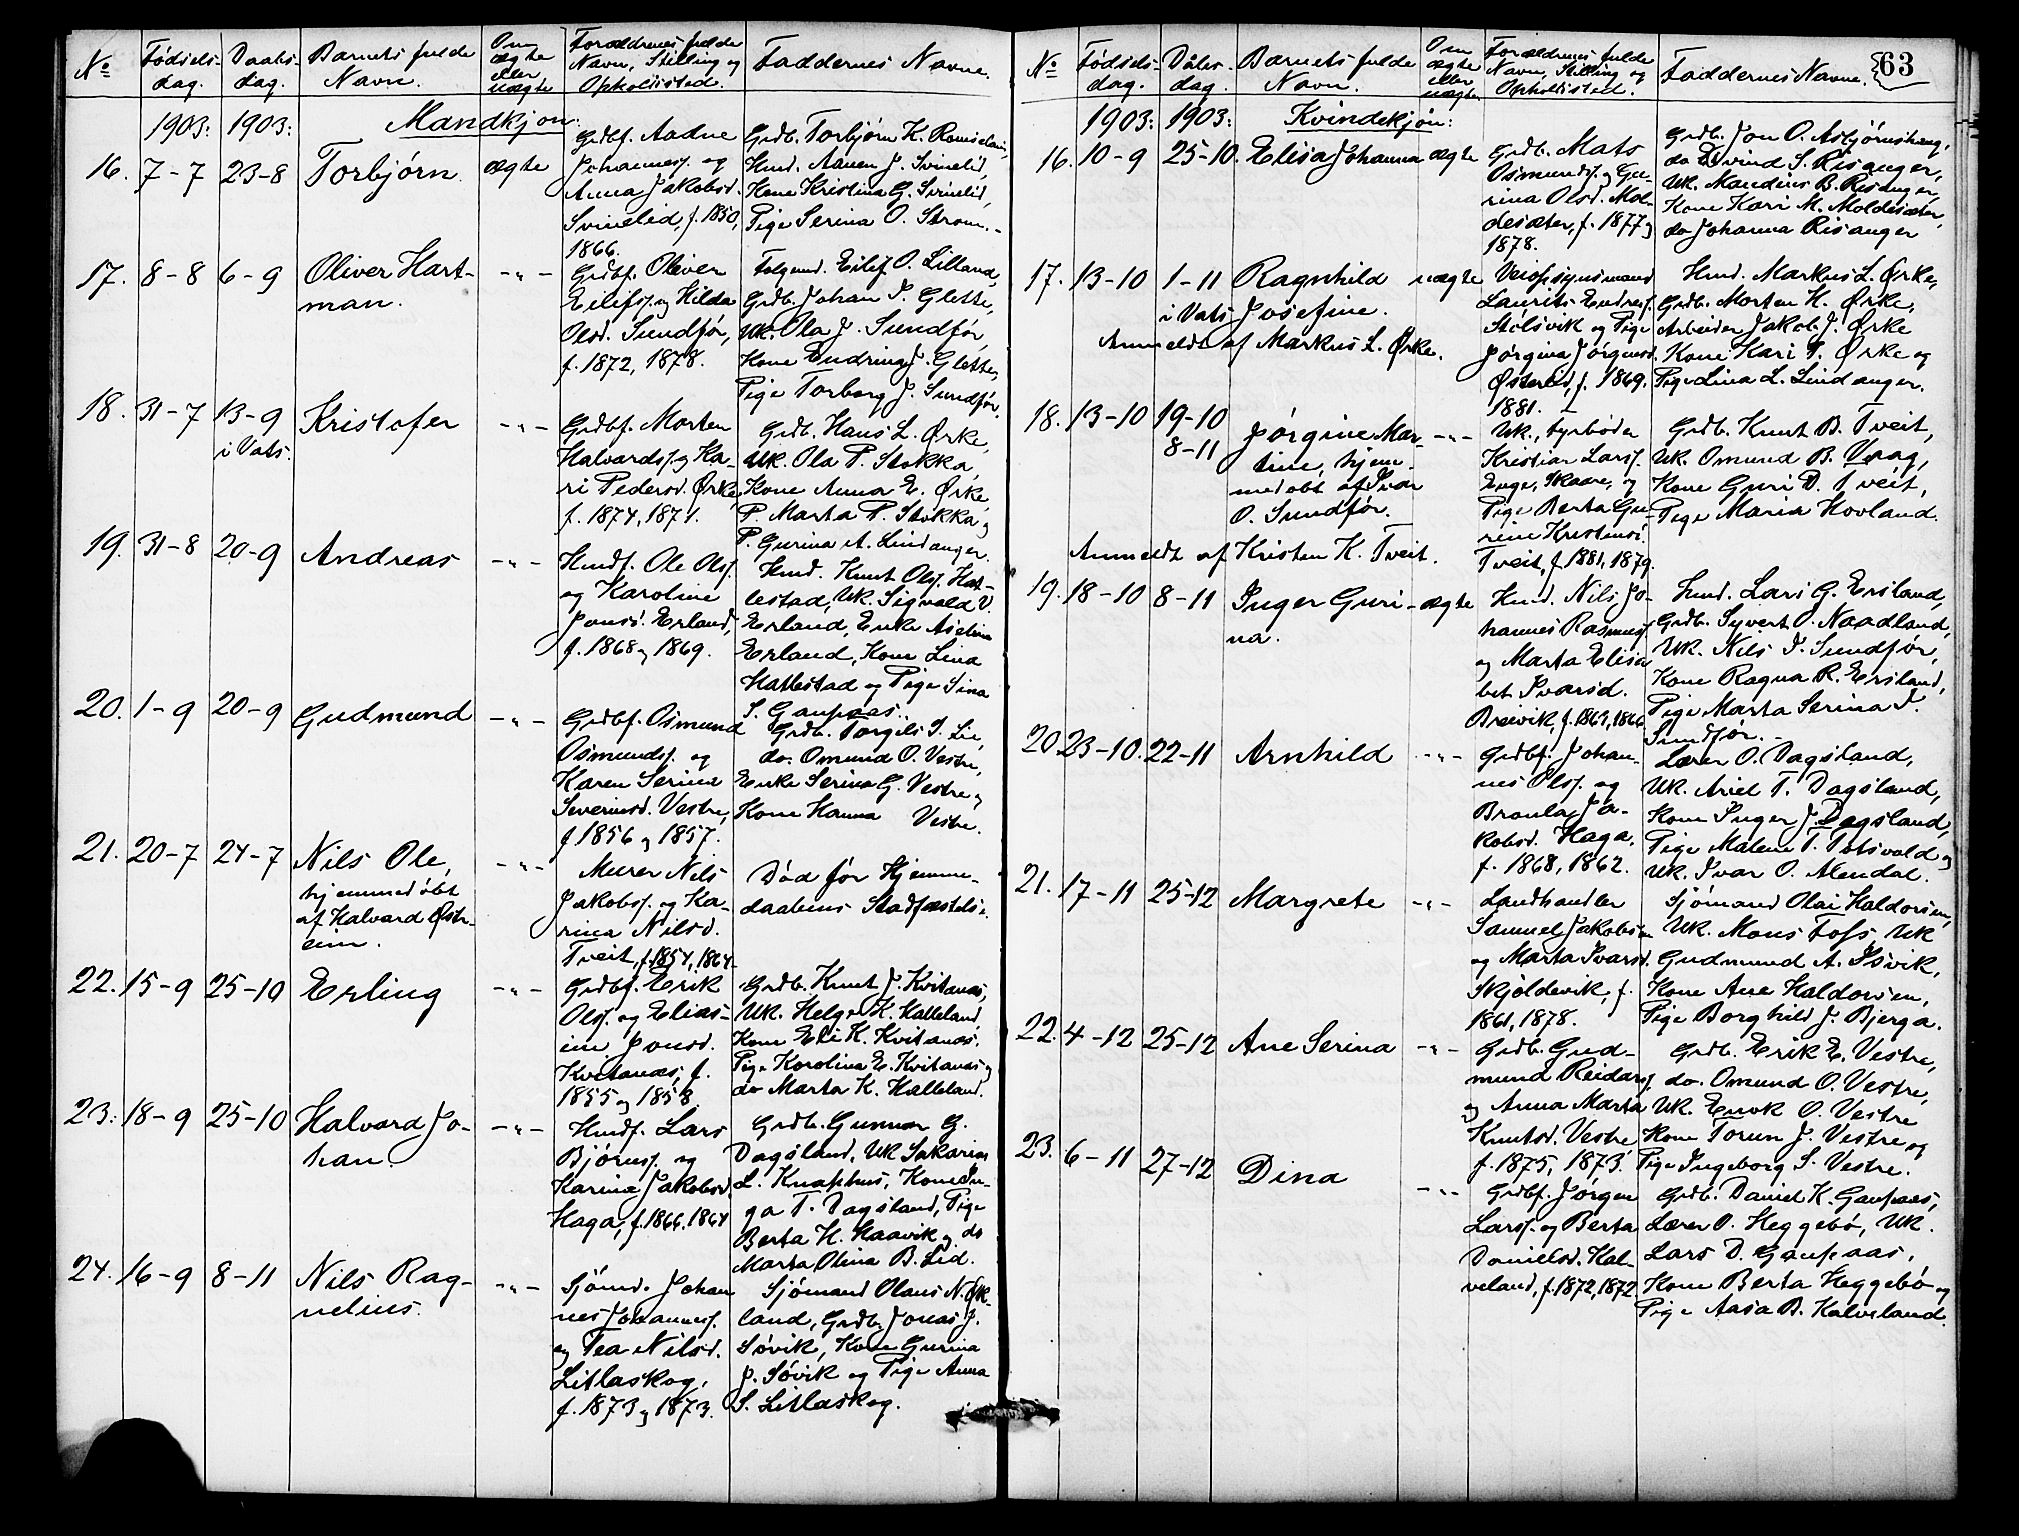 № Fødsels-dag. Daabs-dag. Barnets fulde Navn. Om ægte eller uægte Forældrenes fulde Navn, Stilling og Opholdssted. Faddernes Navne.
1903: 1903: Mandkjøn:
16. 7-7 23-8 Torbjørn ægte
Grdbf. Aadne
Johanness. og
Anna Jakobsd.
Svinelid, f. 1850,
1866.
Grdb. Torbjørn K.
Hmd. J. Svinelid,
Kone Kristina G. Svinelid,
Pige Serina O. Strom.
17. 8-8 6-9 Oliver Hart-
man. -"-
Grdbf. Oliver
Eilifs. og Hilda
Olsd. Sundfør,
f. 1872, 1878.
Folgemd. Eilif O. Lilland,
Grdb. Johan P. Glette,
Uk. Ola J. Sundfør,
Kone Endrina J. Glette,
Pige Torborg J. Sundfør.
18. 31-7 13-9
i Vats. Kristofer -"-
Grdbf. Morten
Halvards. og Ka-
ri Pedersd. Ørke,
f. 1874, 1871.
Grdb. Hans L. Ørke,
Uk. Ola P. Stokka,
Kone Anna E. Ørke,
P. Marta P. Stokka og
P. Gurina A. Lindanger.
19. 31-8 20-9 Andreas -"-
Hmdf. Ole Ols.
og Karoline
Jonsd. Erland,
f. 1868 og 1869.
Hmd. Knut Ols. Hat-
lestad, Uk. Sigvald V.
Erland, Enke Aseline
Erland, Kone Lina
Hatlestad og Pige Sina
S. Gaupaas.
20. 1-9 20-9 Gudmund -"-
Grdbf. Osmund
Osmunds. og
Karen Serina
Severinsd. Vestre,
f. 1856 og 1857.
Grdb. Torgils S. Lie,
do. Omund O. Vestre,
Enke Serina G. Vestre og
Kone Hanna Vestre.
21. 20-7 24-7 Nils Ole,
hjemmedøbt
af Halvard Østr-
em. -"-
Murer Nils
Jakobs. og Ka-
rina Nilsd.
Tveit, f. 1854, 1864.
Død før Hjemme-
daabens Stadfæstelse.
22. 15-9 25-10 Erling -"-
Grdbf. Erik
Ols. og Elias-
ine Jonsd.
Kvitanæs, f.
1855 og 1858.
Grdb. Knut J. Kvitanæs,
Uk. Helge K. Halleland
Kone Eli K. Kvitanæs,
Pige Karolina E. Kvitanæs og
do Marta K. Halleland.
23. 18-9 25-10 Halvard Jo-
han. -"-
Hmdf. Lars
Bjørns. og
Karina Jakobsd.
Haga, f. 1866, 1864
Grdb. Gunnar G.
Dagsland, Uk Sakarias
L. Knaphus, Kone In-
ga T. Dagsland, Pige
Berta H. Haavik og do
Marta Olina B. Lid.
24. 16-9 8-11 Nils Rag-
nelius. -"-
Sjømd. Johan-
nes Johanness.
og Tea Nilsd.
Litlaskog,
f. 1873 og 1873.
Sjømand Olaus N. Øk-
land, Grdb. Jonas J.
Søvik, Kone Gurina
J. Søvik og Pige Anna
S. Litlaskog.
63
№ Fødsels-dag. Dåbs-dag. Barnets fulde Navn. Om ægte eller uægte Forældrenes fulde Navn, Stilling og Opholdssted. Faddernes Navne.
1903: 1903: Kvindekjøn:
16. 10-9 25-10. Elisa Johanna ægte
Grdb. Mats
Osmunds. og Gu-
rina Olsd. Mol-
desæter, f. 1877 og
1878.
Grdb. Jon O. Asbjørnshaug,
do Eivind S. Risanger,
Uk. Mandius B. Risanger,
Kone Kari M. Moldesæter,
do Johanna Risanger
17. 13-10 1-11
i Vats Ragnhild
Josefine. uægte
Anmeldt af Markus L. Ørke.
Veiopsynsmand
Laurits Endres.
Stølsvik og Pige
Jørgina Jørgensd.
f. 1869.
1881.
Hmd. Markus L. Ørke,
Grdb. Morten H. Ørke,
Arbeider Jakob J. Ørke
Kone Kari P. Ørke og
Pige Lina L. Lindanger.
18. 13-10 19-10
8-11 Jørgine Mar-
tine, hjem-
medøbt af Ivar
O. Sundfør. -"-
Anmeldt af Kristen K. Tveit.
Uk., Fyrbøder
Kristian Larss.
Enge, Skaare, og
Pige Berta Gu-
rine Kristensd.
Tveit, f. 1881, 1879.
Grdb. Knut B. Tveit,
Uk. Omund B. Vaag,
Kone Guri D. Tveit,
Pige Maria Hovland.
19. 18-10 8-11 Inger Guri-
na. ægte
Hmd. Nils Jo-
hannes Rasmuss.
og Marta Elisa-
bet Ivarsd.
Breivik, f. 1869, 1866
Hmd. Lars G. Ersland,
Grdb. Syvert O. Naadland,
Uk. Nils I. Sundfør,
Kone Ragna R. Ersland,
Pige Marta Serina I.
Sundfør.
20. 23-10. 22-11 Arnhild -"-
Grdbf. Johan-
nes Ols. og
Bronla Ja-
kobsd. Haga,
f. 1868, 1862.
Lærer O. Dagsland,
Uk. Ariel T. Dagsland,
Kone Inger J. Dagsland,
Pige Malene T. og
Uk. Ivar O. Alendal.
21. 17-11 25-12 Margrete -"-
Landhandler
Samuel Jakobsen
og Marta Ivarsd.
Skjoldevik, f.
1861, 1878.
Sjømand Olai Haldorsen,
Uk. Mons Foss, Uk
Gudmund A. Isvik,
Kone Ane Haldorsen,
Pige Borghild J. Bjerga.
22. 4-12 25-12 Ane Serina -"-
Grdb. Gud-
mund Reidars.
og Anna Marta
Knutsd. Vestre
f. 1875, 1873.
Grdb. Erik E. Vestre,
do. Omund O. Vestre,
Uk. Enok O. Vestre
Kone Torun J. Vestre og
Pige Ingeborg S. Vestre.
23. 6-11 27-12 Dina -"-
Grdbf. Jørgen
Larss. og Berta
Danielsd. Hal-
veland, f. 1872, 1872
Grdb. Daniel K. Gaupaas,
Lærer O. Heggebø, Uk.
Lars D. Gaupaas,
Kone Berta Heggebø og
Pige Aasa B. Halveland.